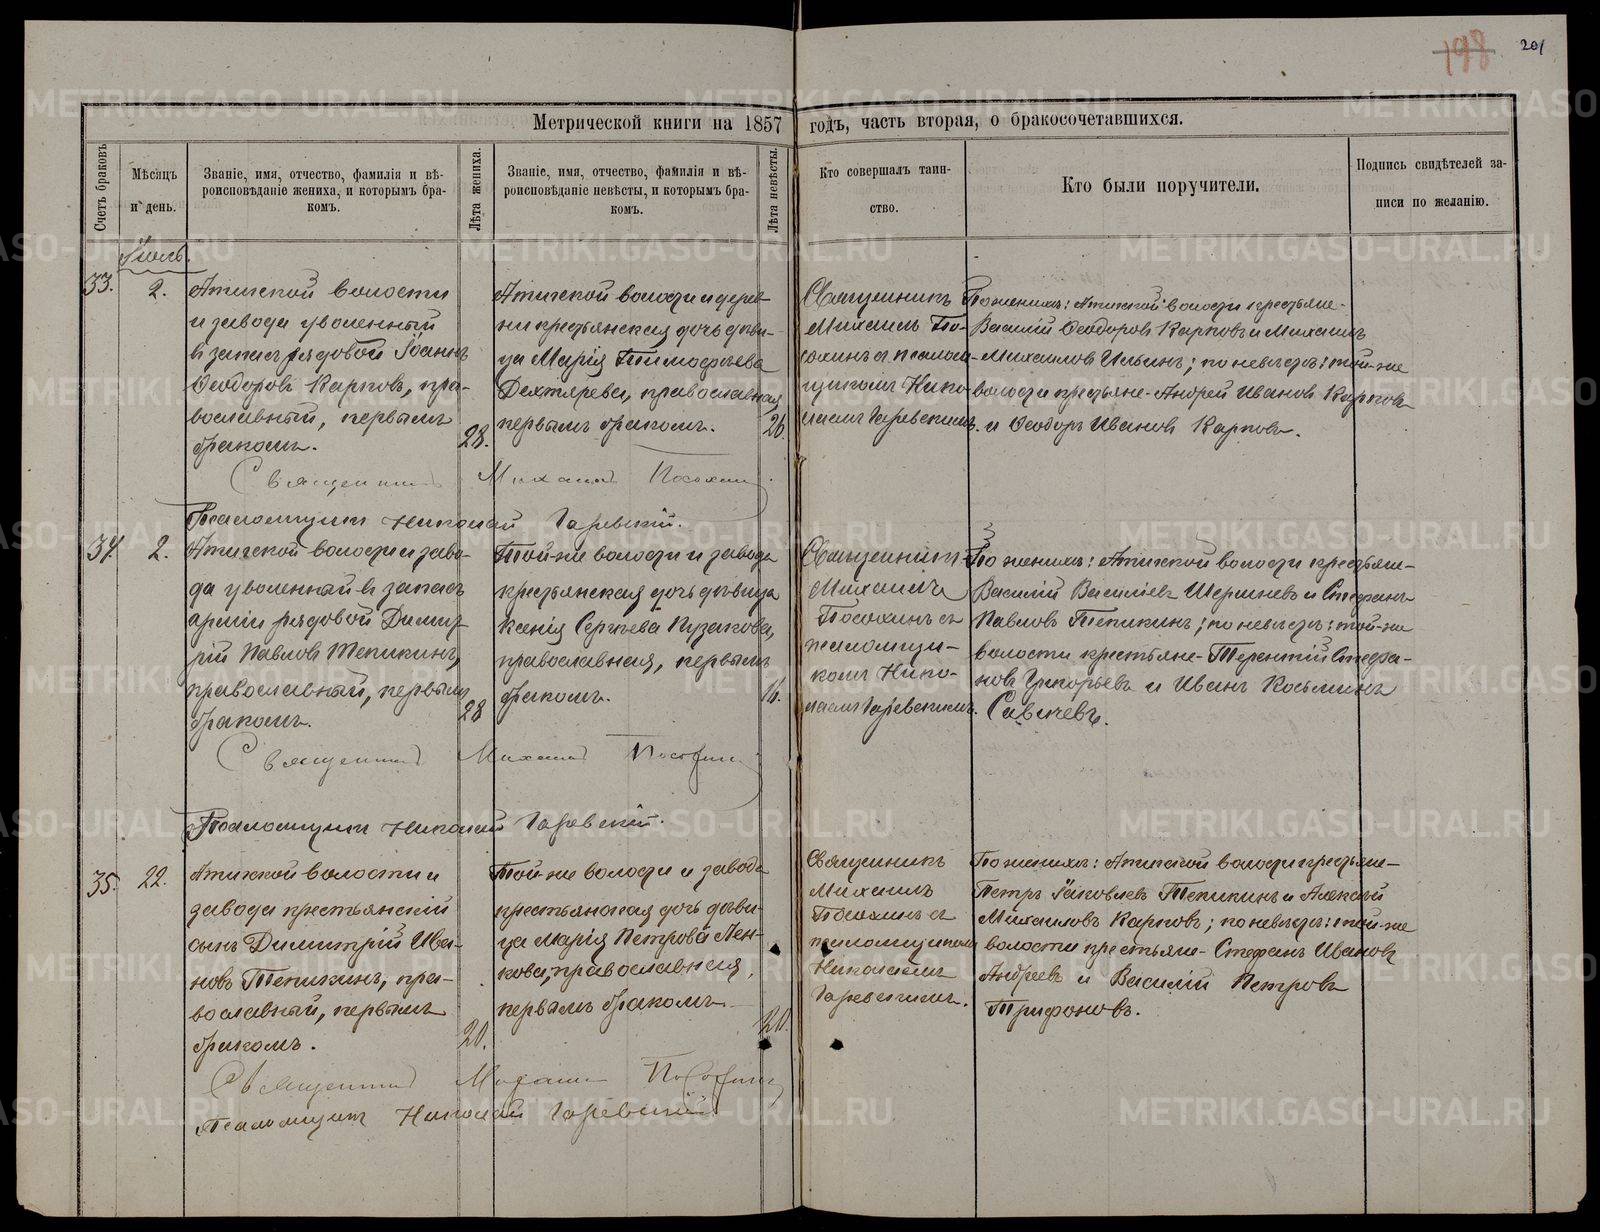 198 201
Метрической книги на 1857 годъ, часть вторая, о бракосочетавшихся.
Счетъ браковъ.
Мѣсяцъ
и день.
Званіе, имя, отчество, фамилія и вѣ-
роисповѣданіе жениха, и которымъ бра-
комъ.
Лѣта жениха.
Званіе, имя, отчество, фамилія и вѣ-
роисповѣданіе невѣсты, и которымъ бра-
комъ.
Лѣта невѣсты.
Кто совершалъ таин-
ство.
Кто были поручители.
Подпись свидѣтелей за-
писи по желанію.
Іюль.
33.
2.
Атигской волости
и завода уволенный
въ запасъ рядовой Іоаннъ
Ѳеодоровъ Карповъ, пра-
вославный, первымъ
бракомъ.
28.
Атигской волости и дерев-
ни крестьянская дочь дѣви-
ца Марія Тимофѣева
Дехтярева, православная,
первымъ бракомъ.
26.
Священникъ
Михаилъ По-
сохинъ съ псалом-
щикомъ Нико-
лаемъ Гаревскимъ.
По женихѣ: Атигской волости крестьяне-
Василій Ѳеодоровъ Карповъ и Михаилъ
Михаиловъ Ильинъ; по невѣстѣ: той-же
волости крестьяне- Андрей Ивановъ Карповъ
и Ѳеодоръ Ивановъ Карповъ.
Священникъ Михаилъ Посохин
Псаломщикъ Николай Гаревскій.
34.
2.
Атигской волости и заво-
да уволенный въ запасъ
арміи рядовой Димит-
рій Павловъ Тепикинъ,
православный, первымъ
бракомъ.
28
Той-же волости и завода
крестьянская дочь дѣвица
Ксенія Сергѣева Пузакова,
православная, первымъ
бракомъ.
16.
Священникъ
Михаилъ
Посохинъ съ
псаломщи-
комъ Нико-
лаемъ Гаревскимъ.
По женихѣ: Атигской волости крестьяне-
Василій Васильевъ и Стефанъ
Павловъ Тепикинъ; по невѣстѣ: той-же
волости крестьяне- Терентій Стефа-
новъ Григорьевъ и Иванъ Косьминъ
Савичевъ.
Священникъ Михаилъ Посохин
Псаломщикъ Николай Гаревскій.
35.
22.
Атигской волости и
завода крестьянскій
сынъ Димитрій Ива-
новъ Тепикинъ, пра-
вославный, первымъ
бракомъ.
20.
Той-же волости и завода
крестьянская дочь дѣви-
ца Марія Петрова Пен-
кова, православная,
первымъ бракомъ.
20.
Священникъ
Михаилъ
Посохинъ съ
псаломщикомъ
Николаемъ
Гаревскимъ.
По женихѣ: Атигской волости крестьяне-
Петръ Іаковлевъ Тепикинъ и Алексѣй
Михаиловъ Карповъ; по невѣстѣ: той-же
волости крестьяне- Стефанъ Ивановъ
Андреевъ и Василій Петровъ
Трифоновъ.
Священникъ Михаилъ Посохинъ
Псаломщикъ Николай Гаревскій
METRIKI.GASO-URAL.RU